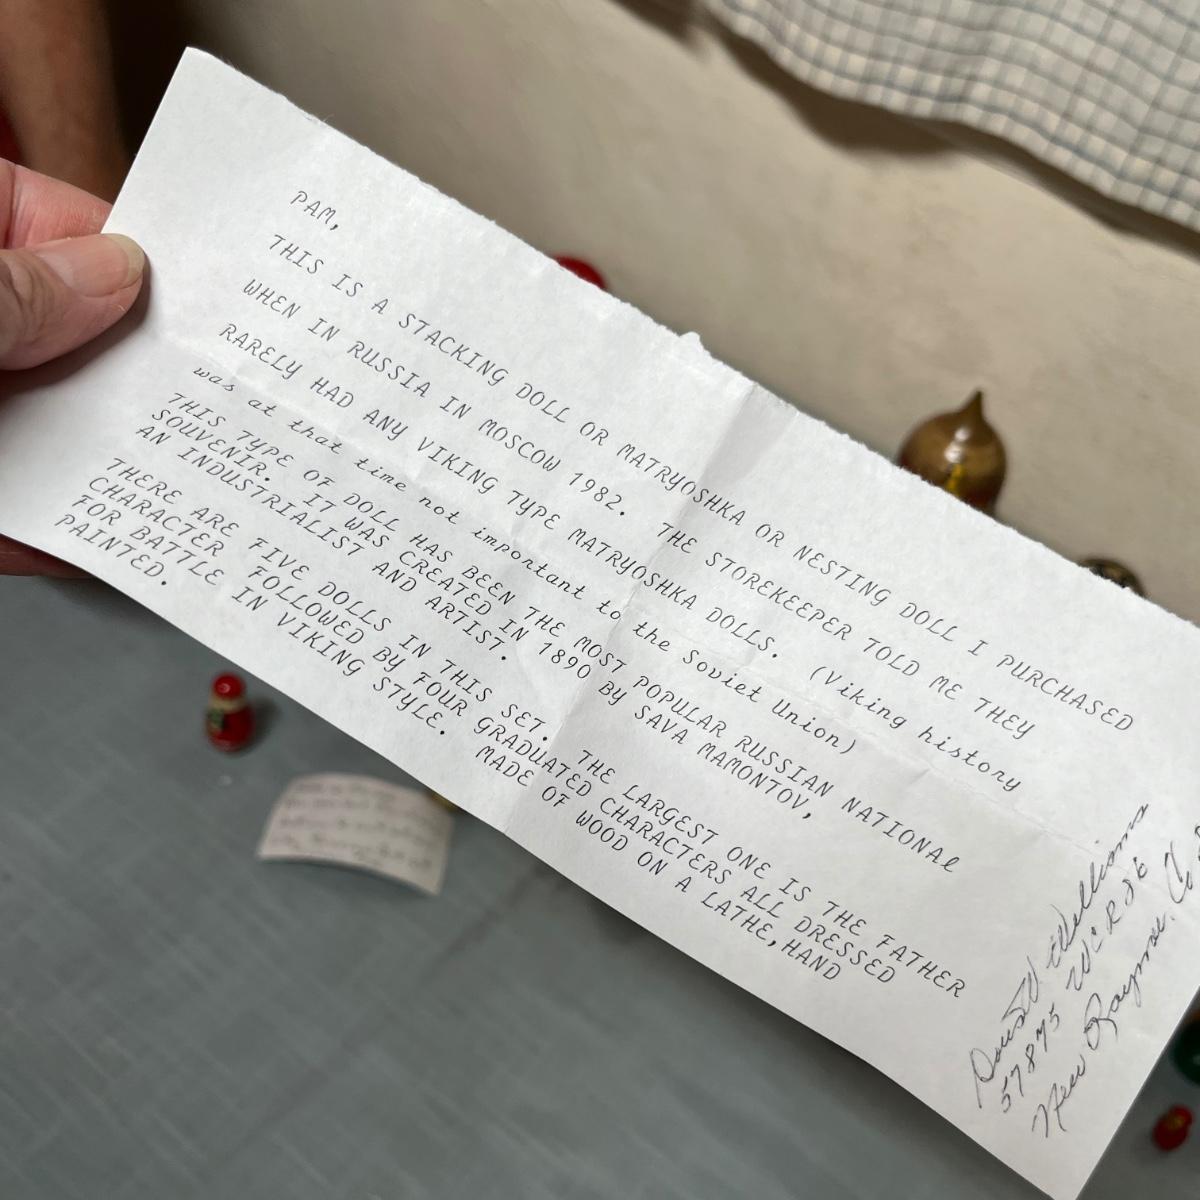 PAM,
THIS IS A STACKING DOLL OR MATRYOSHKA OR NESTING DOLL I PURCHASED
WHEN IN RUSSIA IN MOSCOW 1982. THE STOREKEEPER TOLD ME THEY
RARELY HAD ANY VIKING TYPE MATRYOSHKA DOLLS. (Viking history
was at that time not important to the Soviet Union)
THIS TYPE OF DOLL HAS BEEN THE MOST POPULAR RUSSIAN NATIONAl
SOUVENIR. IT WAS CREATED IN 1890 BY SAVA MAMONTOV,
AN INDUSTRIALIST AND ARTIST.
THERE ARE FIVE DOLLS IN THIS SET. THE LARGEST ONE IS THE FATHER
CHARACTER FOLLOWED BY FOUR GRADUATED CHARACTERS ALL DRESSED
FOR BATTLE IN VIKING STYLE. MADE OF WOOD ON A LATHE,HAND
PAINTED.
Williams
57875
New